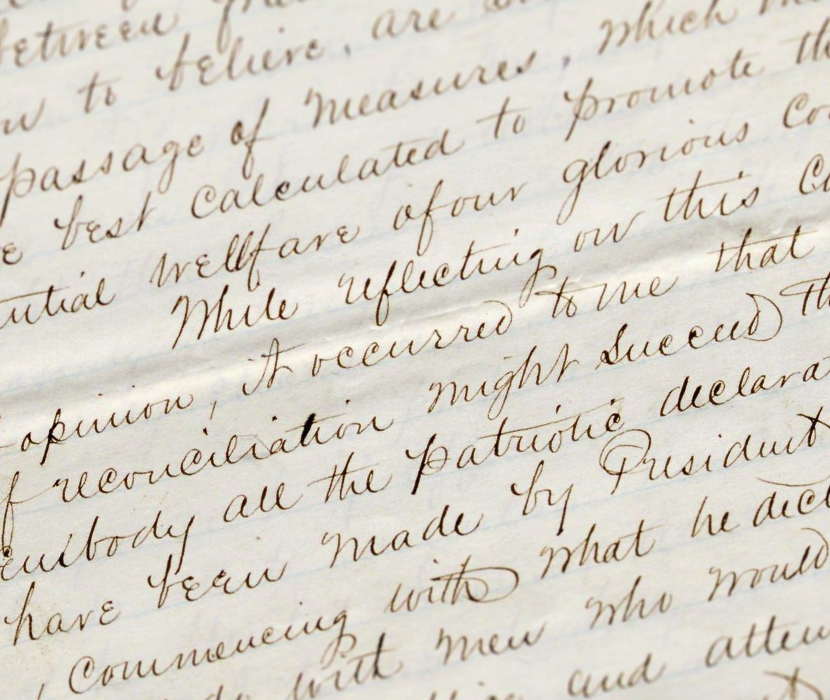 between
to believe, are
passage of measures, which
best calculated to promote th
ntial wellfare of our glorious Co
While reflecting on this C
opinion, it occurred to me that
f reconciliation might succeed th
embody all the patriotic declara
have been made by President
, commencing with what he decl
with men who would
and atten